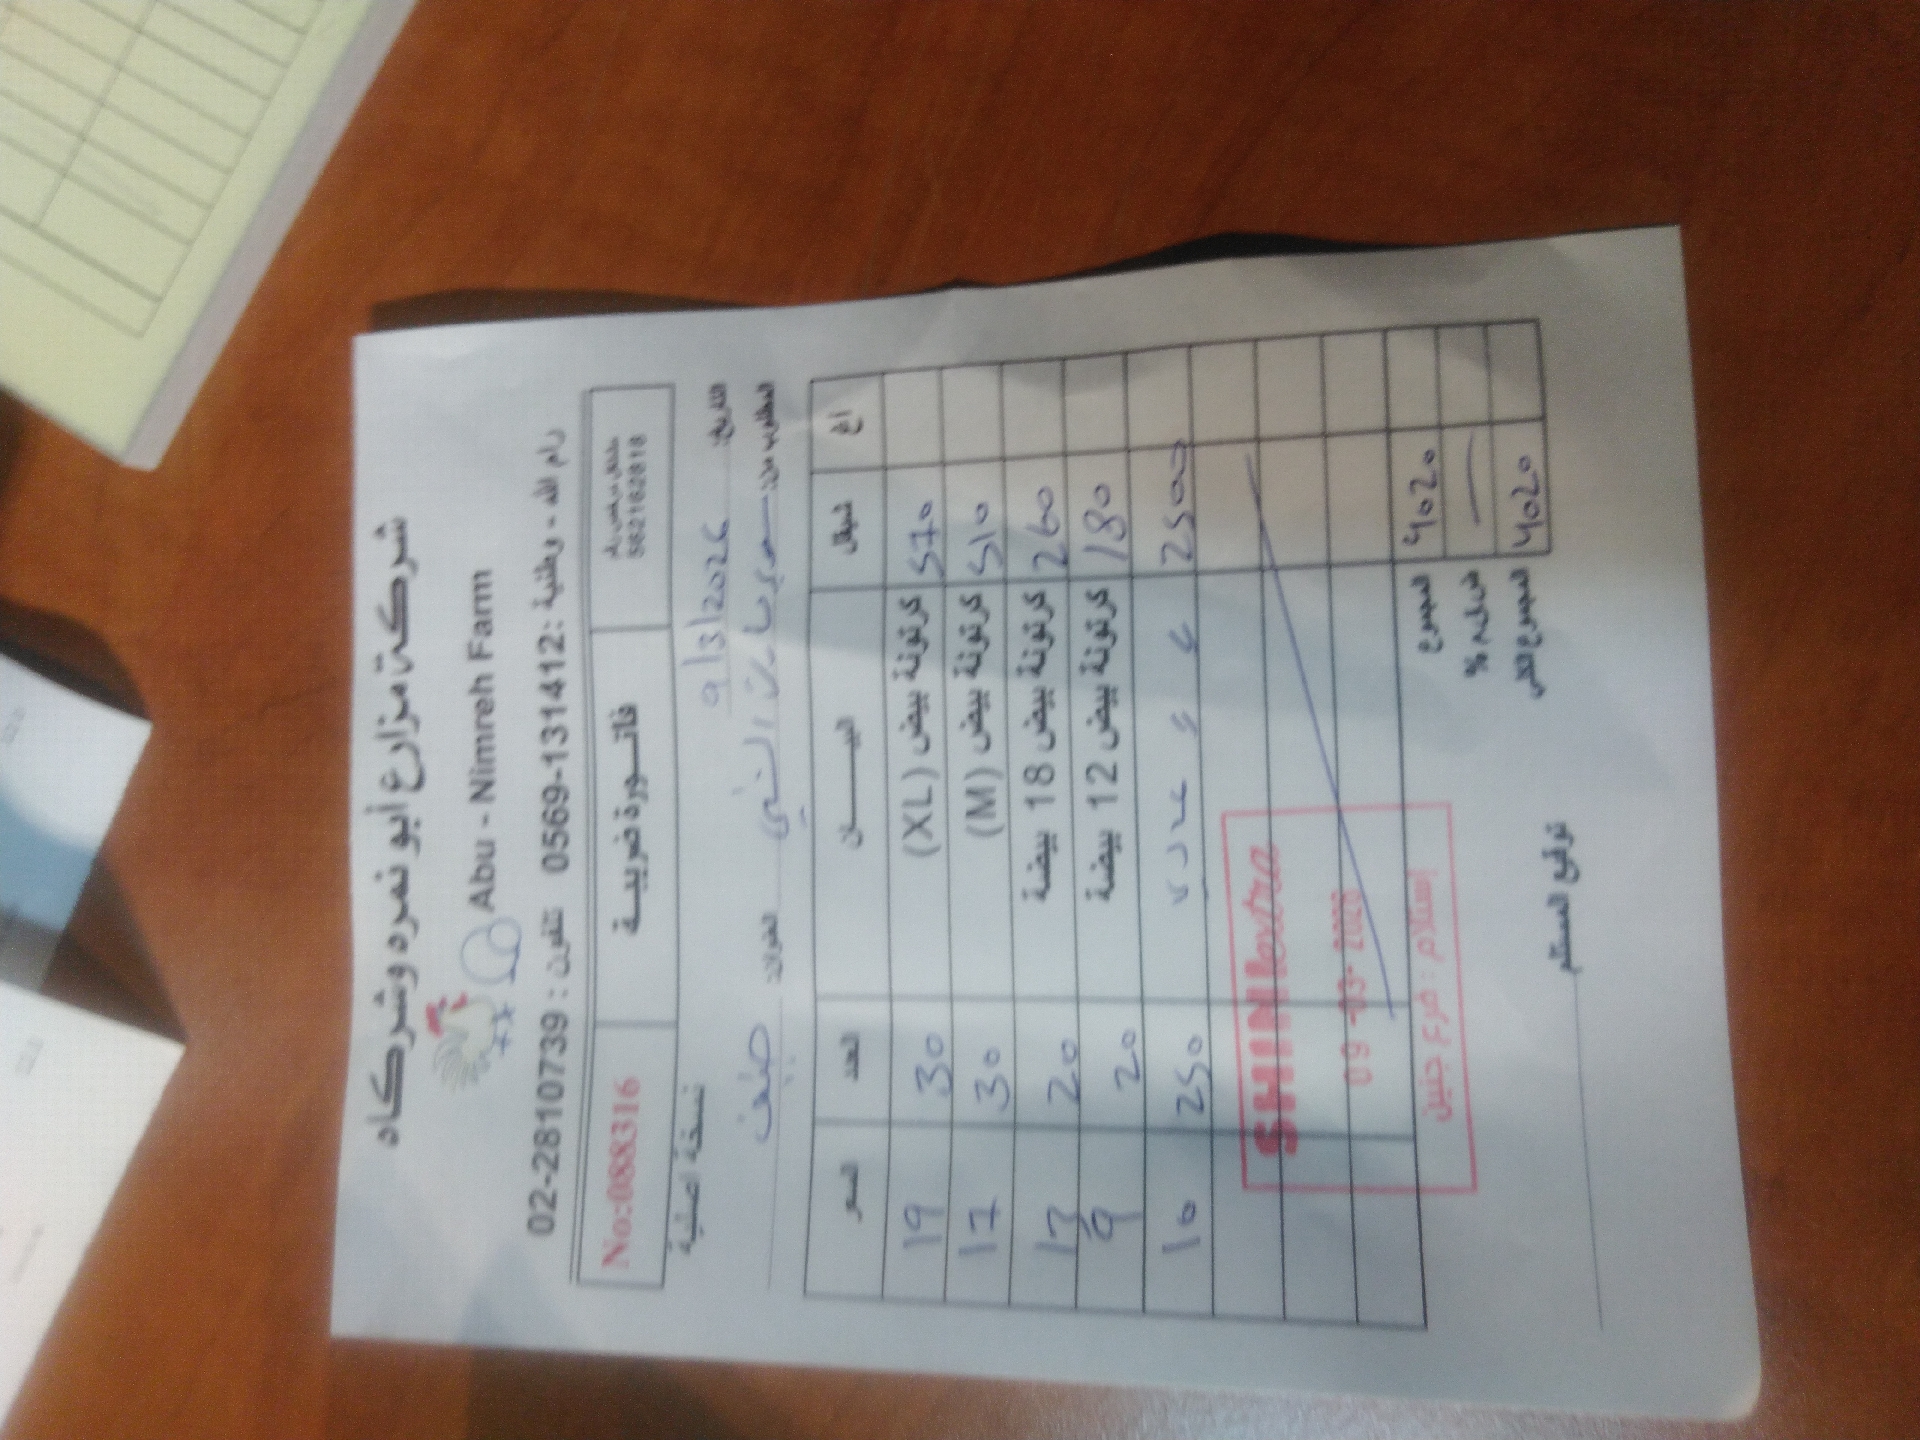 شركة مزارع أبو نمره وشركاه
Abu - Nimreh Farm
رام الله - وطنية: 0569-131412 تلفون: 02-2810739
مشتغل مرخص رقم
562162818
فاتورة ضريبية
No:088316
التاريخ: 9/3/2026
نسخة اصلية
المطلوب من: العنوان: جنين
البيان
شيقل
أغ
العدد
السعر
كرتونة بيض (XL) 570 30 19
كرتونة بيض (M) 510 30 17
كرتونة بيض 18 بيضة 260 20 13
كرتونة بيض 12 بيضة 180 20 9
2500 250 10
المجموع 4020
%
المجموع الكلي 4020
SHINI extra
09 -03- 2026
استلام : فرع جنين
توقيع المستلم